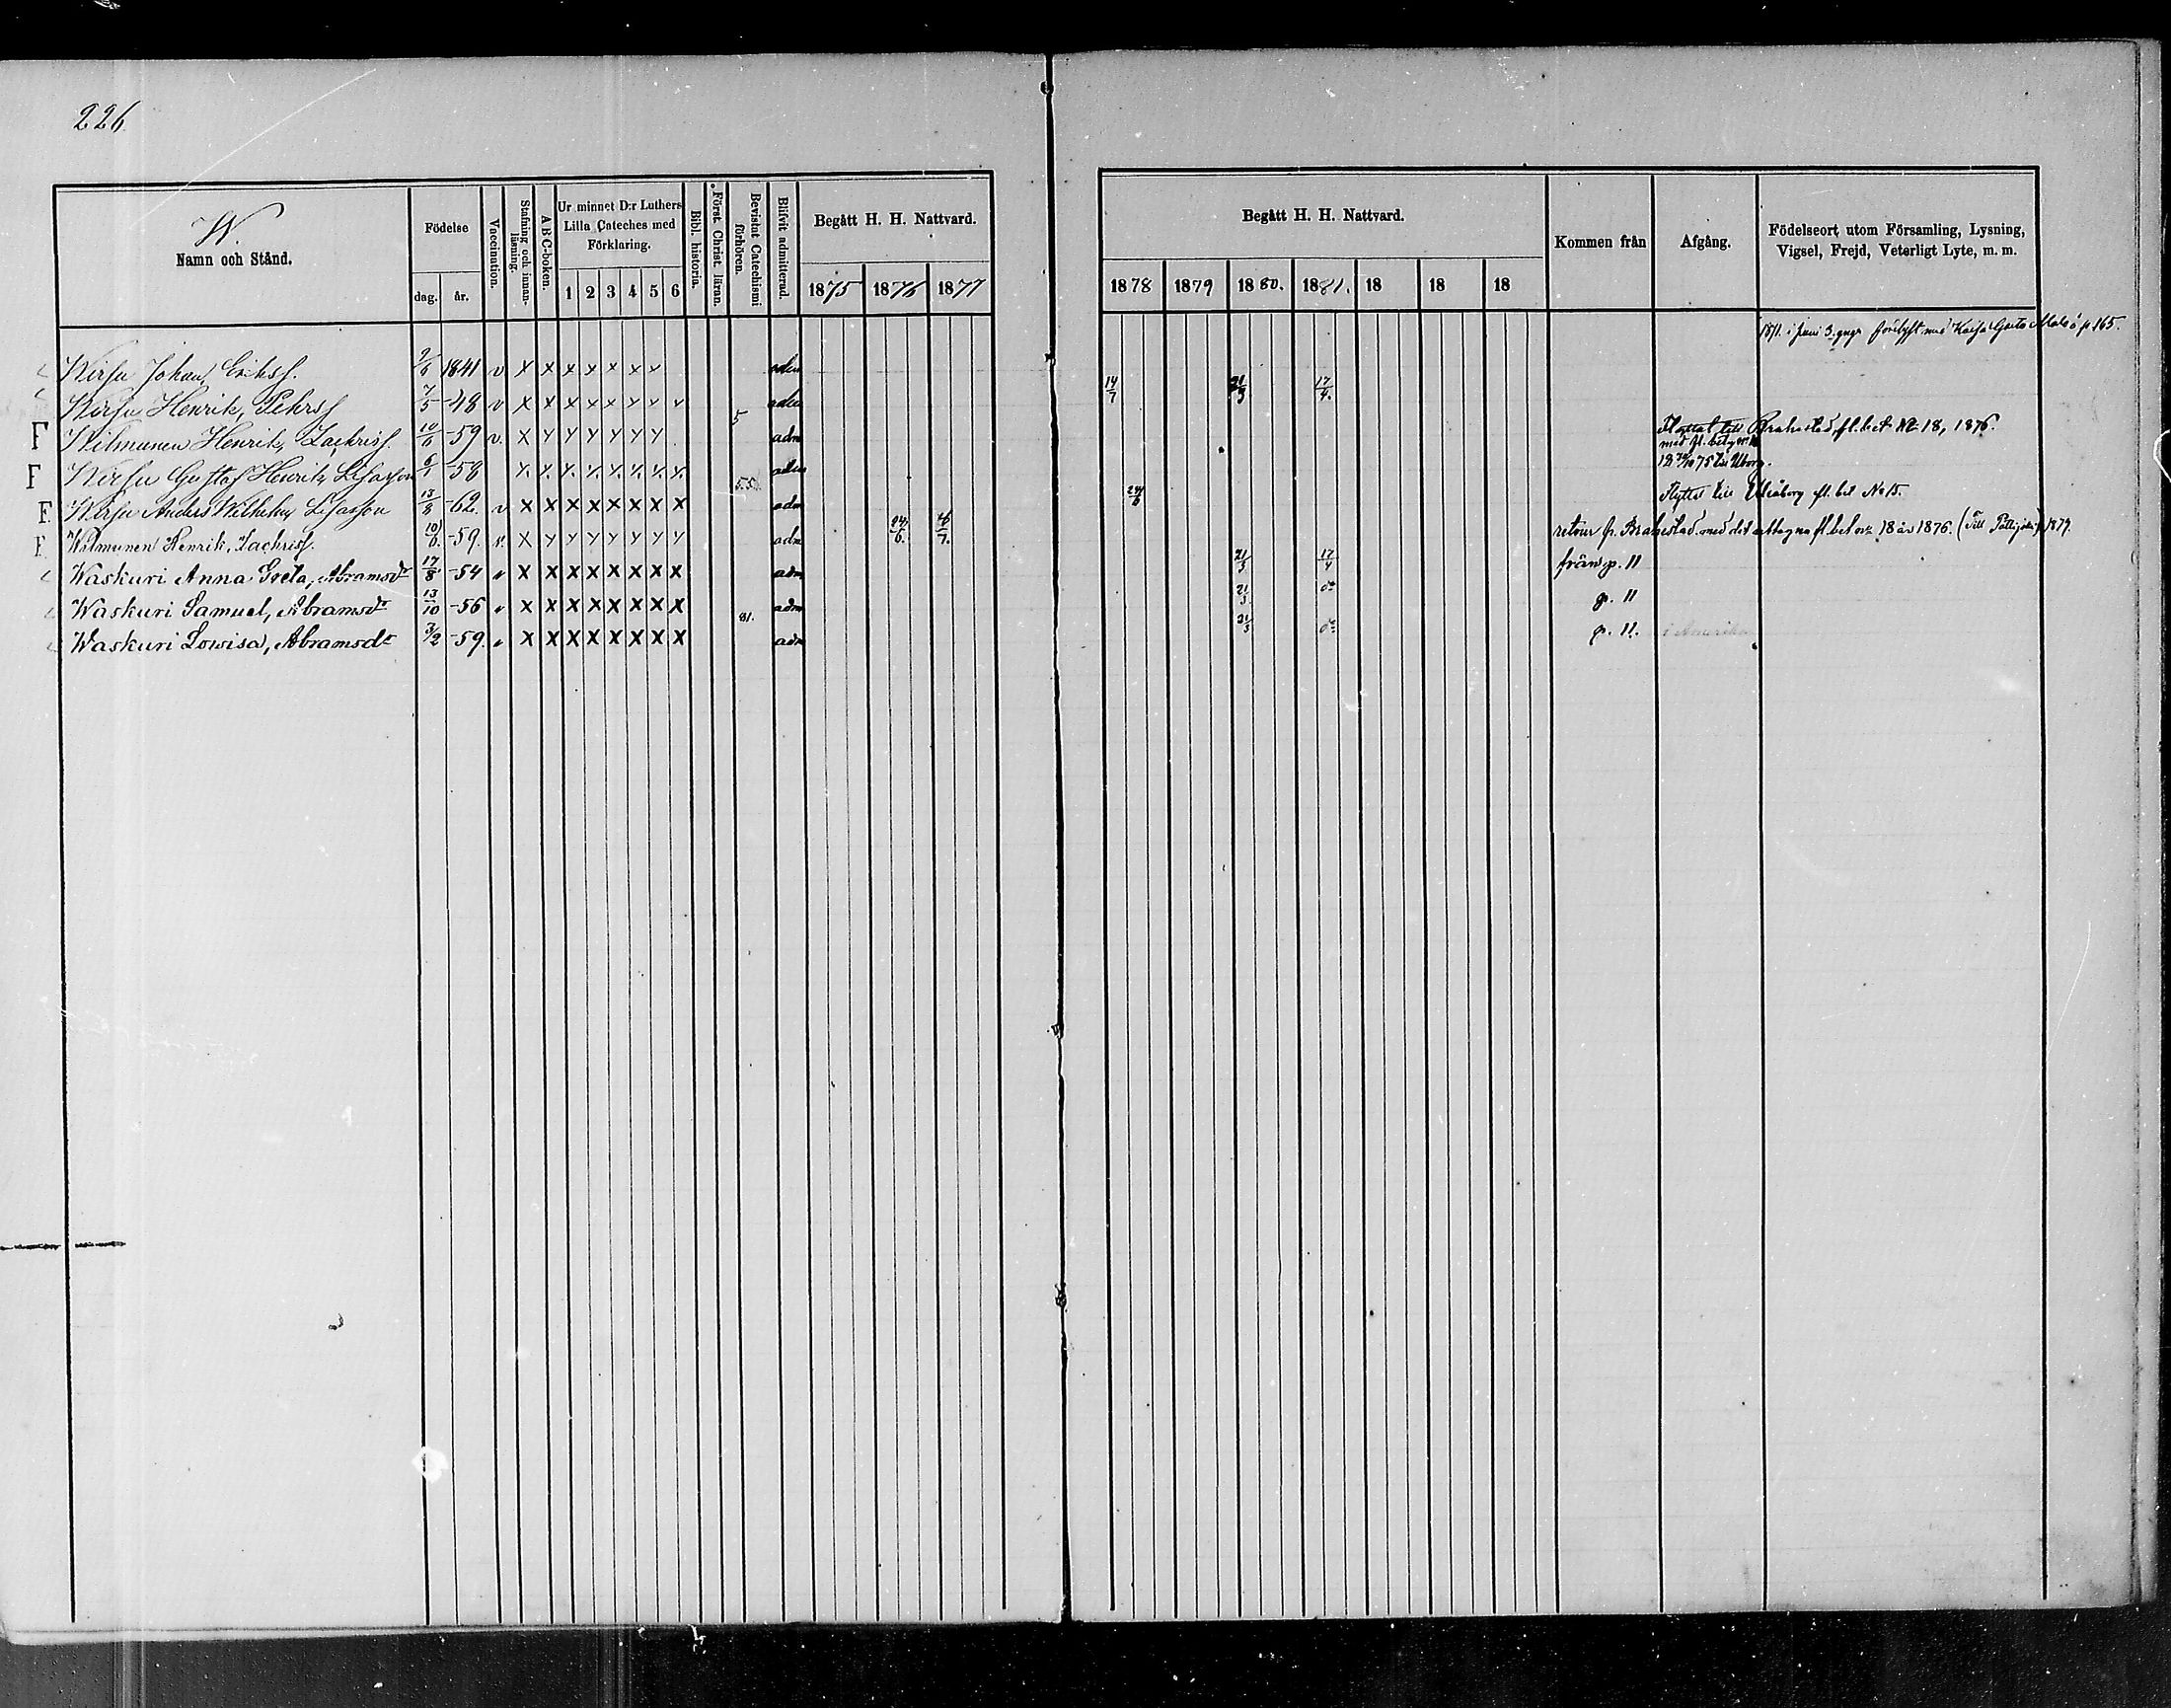 226
W.
Namn och Stånd.
Födelse
dag. år.
Vaccination.
Stafning och innanläsning.
A B C-boken.
Ur minnet D:r Luthers Lilla Cateches med Förklaring.
1 2 3 4 5 6
Bibl. historia.
Först. Christ. läran.
Bevistat Catechismi förhören.
Blifvit admitterad.
Begått H. H. Nattvard.
1875 1876 1877
Begått H. H. Nattvard.
1878 1879 1880. 1881. 18 18 18
Kommen från
Afgång.
Födelseort utom Församling, Lysning, Vigsel, Frejd, Veterligt Lyte, m. m.
1871. i juni 3. gngr förelyst med Kajsa Greta p 165.
Wirsu Johan, Erikss. 1841 v X X X X X X X adm
Wirsu Henrik, Pehrss 7/5 -48 v X X X X X X X X adm 14/7 21/3 17/4.
F Wilmunen Henrik, Zachriss. 10/6 -59 v. X Y Y Y Y Y Y 5 adm Flyttat till Brahestad, fl. bet. No 18, 1876.
F Wirsu Gustaf Henrik, 6/1 -58 X. X. X. X. X. X. X. X. adm med fl. betyg
75 till Uborg.
F. Wirsu Anders Wilhelm, 13/8 -62. v X X X X X X X X 5.5. adm 24/6 Flyttat till Uleåborg fl. bet No 15.
F. Wilmunen Henrik, Zachriss. 10/6. -59. v. X Y Y Y Y Y Y Y adm 24/6. 7. retour fr. Brahestad med det uttagna fl. bet. 18 år 1876. (Till Pattijoki) 1879.
Waskuri Anna Greta, Abramsdr 17/8 -54 v X X X X X X X X adm 21/3 17/4 från p. 11
Waskuri Samuel, Abramsdr 13/10 -56 v X X X X X X X X adm 21/3. do p. 11
Waskuri Lowisa, Abramsdr 3/2 -59. v X X X X X X X X 81. adm 21/3 do p. 11. i Amerika